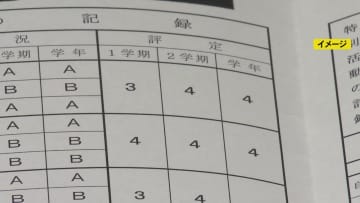 の 記 録
イメージ
況 評 定
学期 学年 1学期 2学期 学年
A A
B B 3 4 4
B B
A A
B B 4 4 4
B B
A A
B B 3 4
特別活動の記録